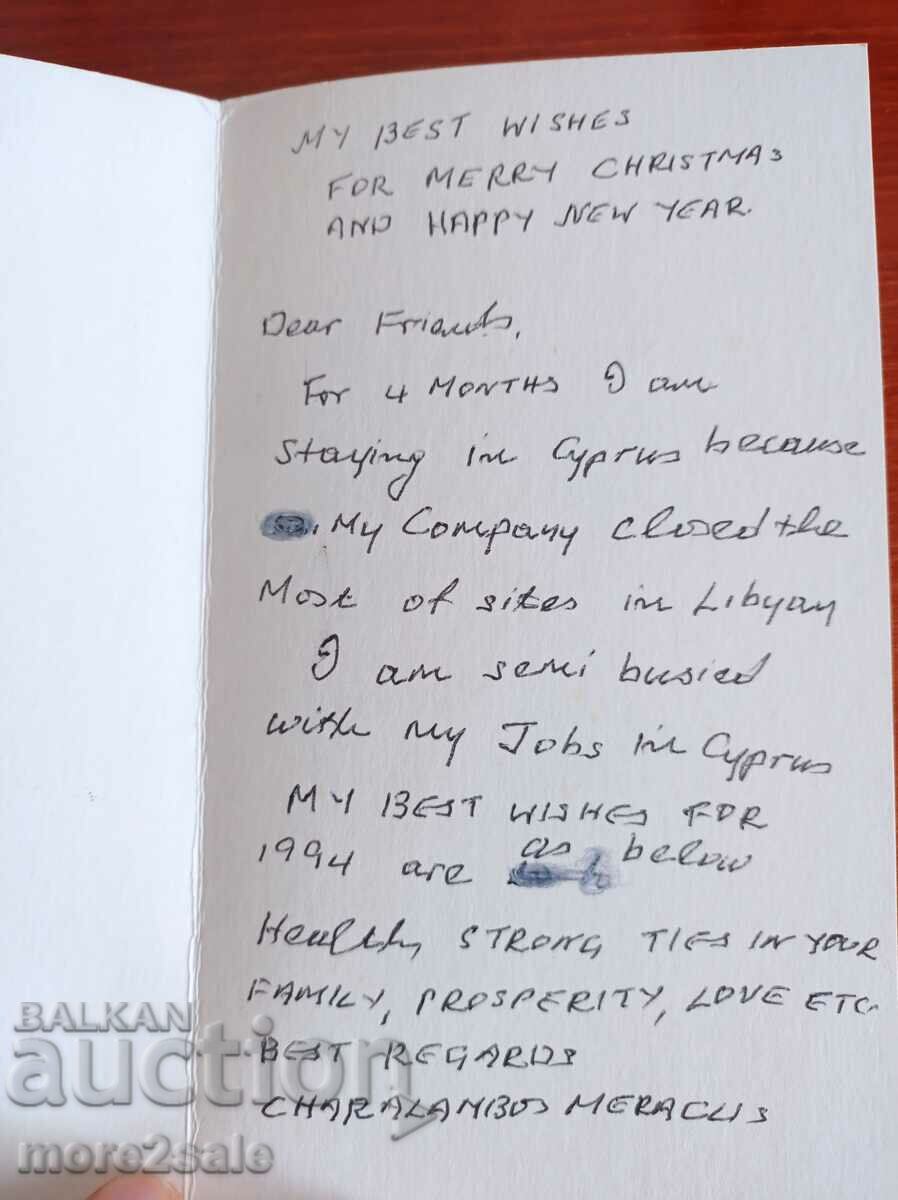 MY BEST WISHES
FOR MERRY CHRISTMAS
AND HAPPY NEW YEAR.
Dear Friends,
For 4 MONTHS I am
staying in Cyprus because
My Company closed the
Most of sites in Libyan
I am semi busied
with my Jobs in Cyprus
MY BEST WISHES FOR
1994 are as below
Healthy STRONG TIES IN YOUR
FAMILY, PROSPERITY, LOVE ETC.
BEST REGARDS
CHARALAMBOS MERACLIS
BALKAN
auction
more2sale